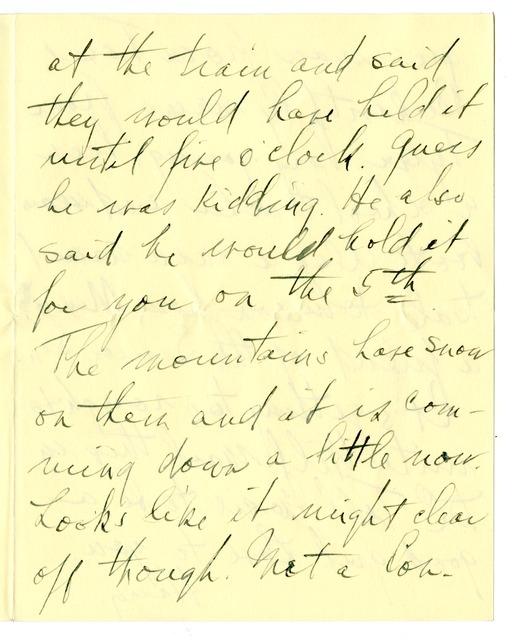 at the train and said
they would have held it
until five o'clock. Guess
he was kidding. He also
said he would hold it
for you on the 5th
The mountains have snow
on them and it is com-
ming down a little now.
Looks like it might clear
off though. Met a Con-